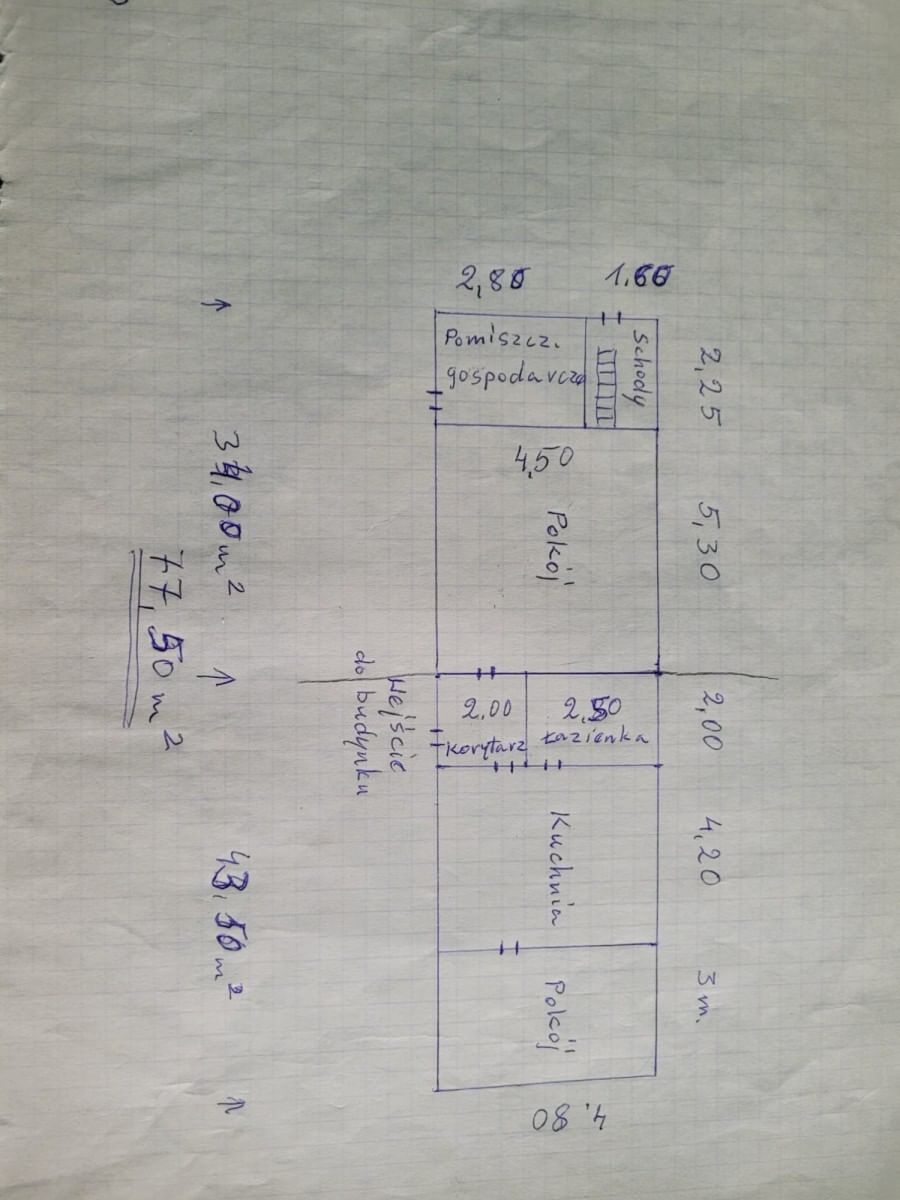 2,80
1.60
2,25
5,30
2,00
4,20
3 m.
Pomiszcz.
gospodarcze
Schody
4,50
Pokój
2,00
Korytarz
2,50
Łazienka
Kuchnia
Pokój
4.80
Wejście
do budynku
34,00 m²
43,50 m²
77,50 m²